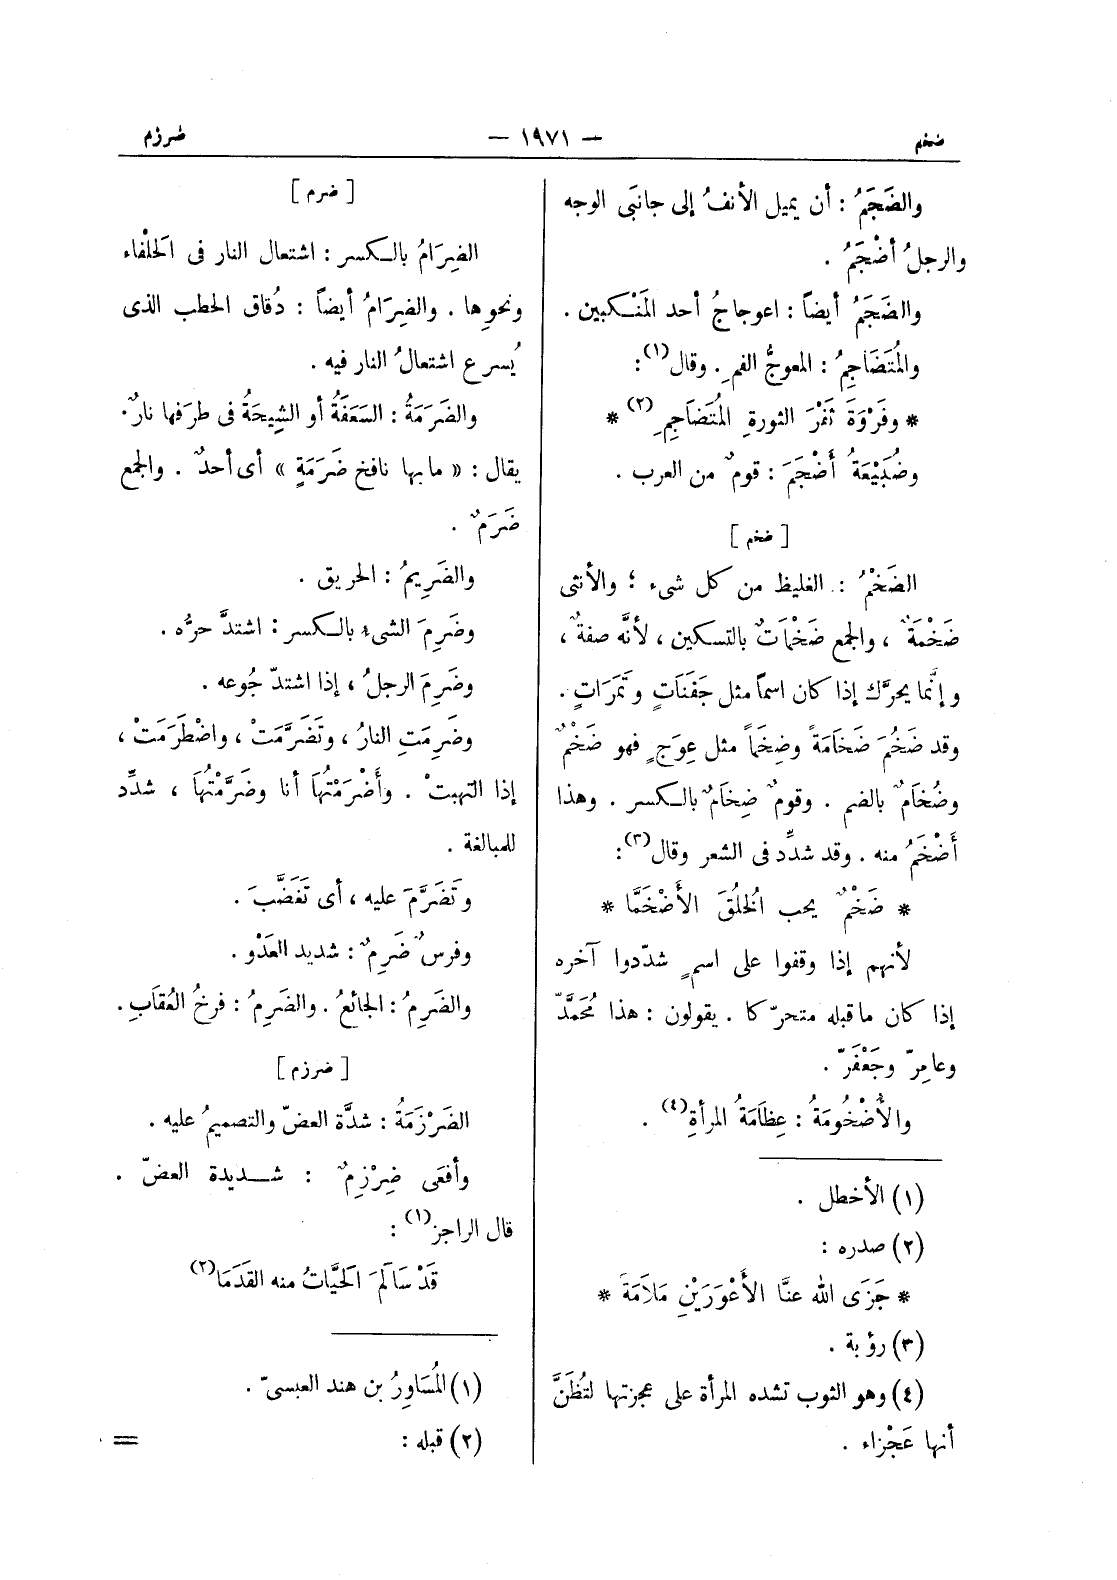 ضخم
— ١٩٧١ —
ضرزم
والضَجَمُ : أن يميل الأنفُ إلى جانبَى الوجه
والرجلُ أضْجَمُ .
والضَجَمُ أيضاً : اعوجاجُ أحد المَنْكبين .
والمُتَضَاجِمُ : المعوجُّ الفمِ . وقال(١) :
* وفَرْوَةَ ثَفْرَ الثورةِ المُتَضاَجِمِ(٢) *
وضُبَيْعَةُ أَضْجَمَ : قومٌ من العرب .
[ ضخم ]
الضَخْمُ : الغليظ من كل شىء ؛ والأنثى
ضَخْمَةٌ ، والجمع ضَخْمَاتٌ بالتسكين ، لأنَّه صفةٌ ،
وإنَّما يحرَّك إذا كان اسماً مثل جَفَنَاتٍ وتَمَرَاتٍ .
وقد ضَخُمَ ضَخَامَةً وضِخَماً مثل عِوَجٍ فهو ضَخْمٌ
وضُخاَمٌ بالضم . وقومٌ ضِخاَمٌ بالكسر . وهذا
أَضْخَمُ منه . وقد شدِّد فى الشعر وقال(٣) :
* ضَخْمٌ يحب الخُلُقَ الأَضْخَمَّا *
لأنهم إذا وقفوا على اسمٍ شدّدوا آخره
إذا كان ماقبله متحرّكا . يقولون : هذا مُحَمَّدّ
وعامِرّ وجَعْفَرّ .
والأُضْخُومَةُ : عِظاَمَةُ المرأةِ(٤) .
(١) الأخطل .
(٢) صدره :
* جَزَى الله عنَّا الأَعْوَرَيْنِ مَلاَمَةً *
(٣) رؤبة .
(٤) وهو الثوب تشده المرأة على عجزتها لتُظَنَّ
أنها عَجْزاء .
[ ضرم ]
الضِرَامُ بالكسر : اشتعال النار فى الحَلْفاء
ونحوِها . والضِرَامُ أيضاً : دُقاق الحطب الذى
يُسرع اشتعالُ النار فيه .
والضَرَمَةُ : السَعَفَةُ أو الشِيحَةُ فى طرَفها نارٌ .
يقال : « مابها نافخ ضَرَمَةٍ » أى أحدٌ . والجمع
ضَرَمٌ .
والضَرِيمُ : الحريق .
وضَرِمَ الشىءُ بالكسر : اشتدَّ حرُّه .
وضَرِمَ الرجلُ ، إذا اشتدّ جُوعه .
وضَرِمَتِ النارُ ، وتَضَرَّمَتْ ، واضْطَرَمَتْ ،
إذا التهبتْ . وأَضْرَمْتُهاَ أنا وضَرَّمْتُهاَ ، شدِّد
للمبالغة .
وتَضَرَّمَ عليه ، أى تَغَضَّبَ .
وفرسٌ ضَرِمٌ : شديد العَدْو .
والضَرِمُ : الجائعُ . والضَرِمُ : فرخُ العُقاَبِ .
[ ضرزم ]
الضَرْزَمَةُ : شدَّة العضّ والتصميمُ عليه .
وأفعَى ضِرْزِمٌ : شديدة العضّ .
قال الراجز(١) :
قَدْ سَالَمَ الحَيَّاتُ منه القَدَمَا(٢)
(١) المُسَاوِرُ بن هند العبسىّ .
(٢) قبله :
=